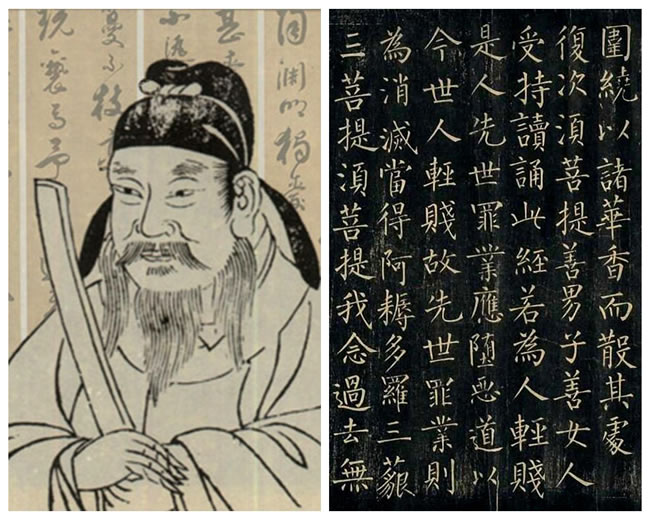 圍繞以諸華香而散其處
復次須菩提善男子善女人
受持讀誦此經若為人輕賤
是人先世罪業應墮恶道以
今世人輕賤故先世罪業則
為消滅當得阿耨多羅三藐
三菩提須菩提我念過去無
淵明獨愛
甚
不
蔓不枝
玩褻焉予